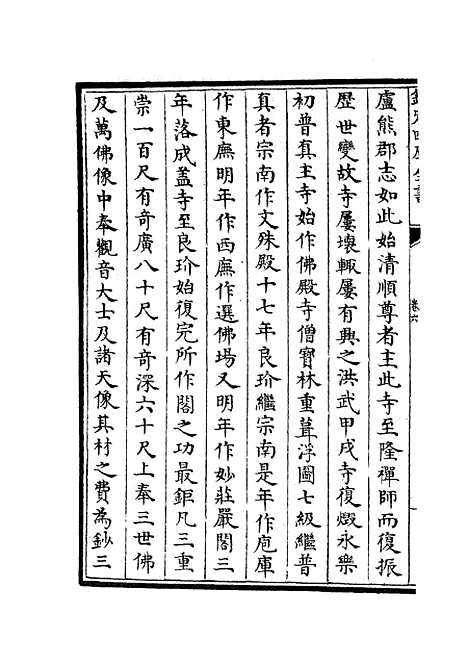 盧熊郡志如此始清順尊者主此寺至隆禪師而復振
歴世變故寺屢壊輙屢有興之洪武甲戌寺復燬永樂
初普真主寺始作佛殿寺僧寳林重葺浮圖七級繼普
真者宗南作文殊殿十七年良玠繼宗南是年作庖庫
作東廡明年作西廡作選佛場又明年作妙莊嚴閣三
年落成葢寺至良玠始復完所作閣之功最鉅凡三重
崇一百尺有奇廣八十尺有奇深六十尺上奉三世佛
及萬佛像中奉觀音大士及諸天像其材之費為鈔三
卷六